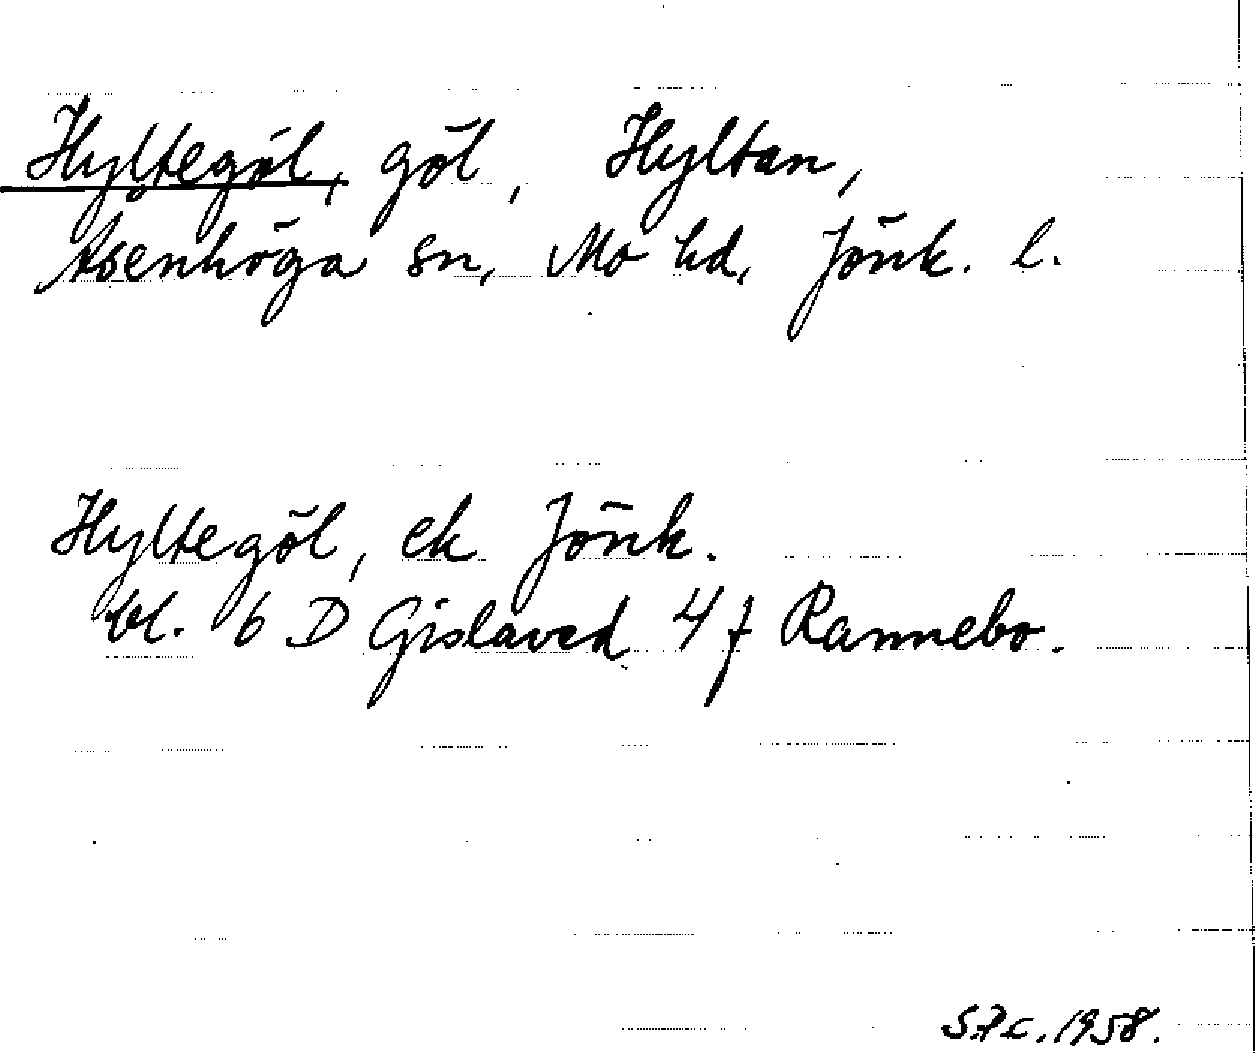 Hyltegöl, göl, Hyltan,
Åsenhöga sn, Mo hd, Jönk. l.
Hyltegöl, ek Jönk.
bl. 6 D Gislaved 4 f Rannebo.
S.P.C. 1958.